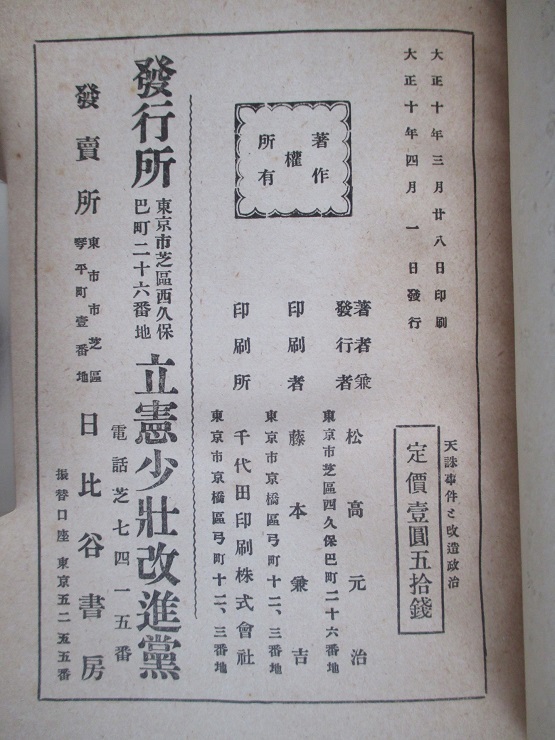 大正十年三月廿八日印刷
大正十年四月一日發行
天誅事件と改造政治
定價壹圓五拾錢
著作權所有
著者兼發行者
東京市芝區西久保巴町二十六番地
松高元治
印刷者
東京市京橋區弓町十二、三番地
藤本兼吉
印刷所
東京市京橋區弓町十二、三番地
千代田印刷株式會社
發行所
東京市芝區西久保巴町二十六番地
立憲少壯改進黨
電話芝七四一五番
發賣所
東市市芝區琴平町壹番地
日比谷書房
振替口座東京五二五五番